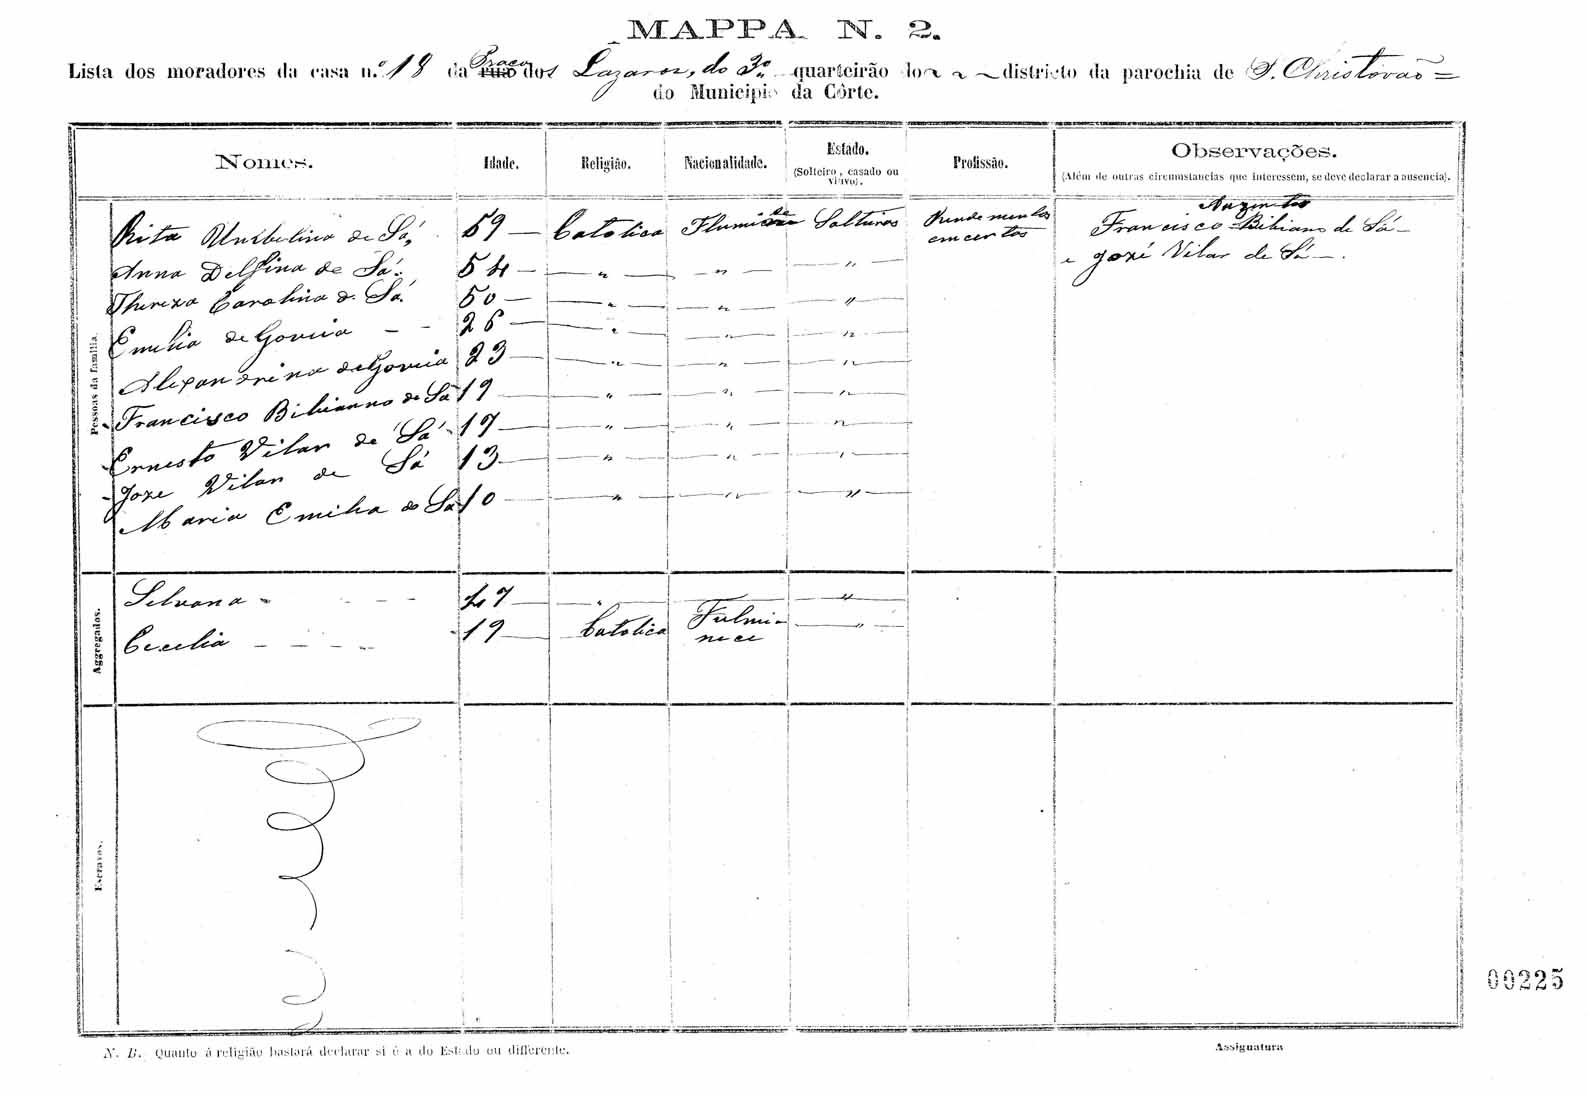 MAPPA N. 2.
Lista dos moradores da casa n.º 18 da Praça rua dos Lazaros, do 3º quarteirão do districto da parochia de S. Christovão =
do Municipio da Côrte.
Nomes. Idade. Religião. Nacionalidade. Estado. (Solteiro, casado ou viuvo). Profissão. Observações. (Além de outras circumstancias que interessem, se deve declarar a ausencia).
Pessoas da familia.
Rita Umbelina de Sá, 59 — Catolica Solturas Rendementos emcertos
Anna Delfina de Sá. 54 — " — " — "
Thereza Carolina de Sá. 50 — " — " — "
Emilia de Gouvia — - 26 — " — " — "
Alexandrina de Gouvia 23 — " — " — "
Francisco Bibianno de Sá 19 — " — " — "
Ernesto Vilar de Sá 17 — " — " — "
Joze Vilar de Sá 13 — " — " — "
Maria Emilia de Sá 10 — " — " — "
Auzentes
Francisco Bibiano de Sá —
e Jozé Vilar de Sá — .
Aggregados.
Silvana - - - - 47 — " — "
Cecelia - - - - 19 — Catolica Fulminece — " —
Escravos.
00225
N. B. Quanto á religião bastará declarar si é a do Estado ou differente.
Assignatura